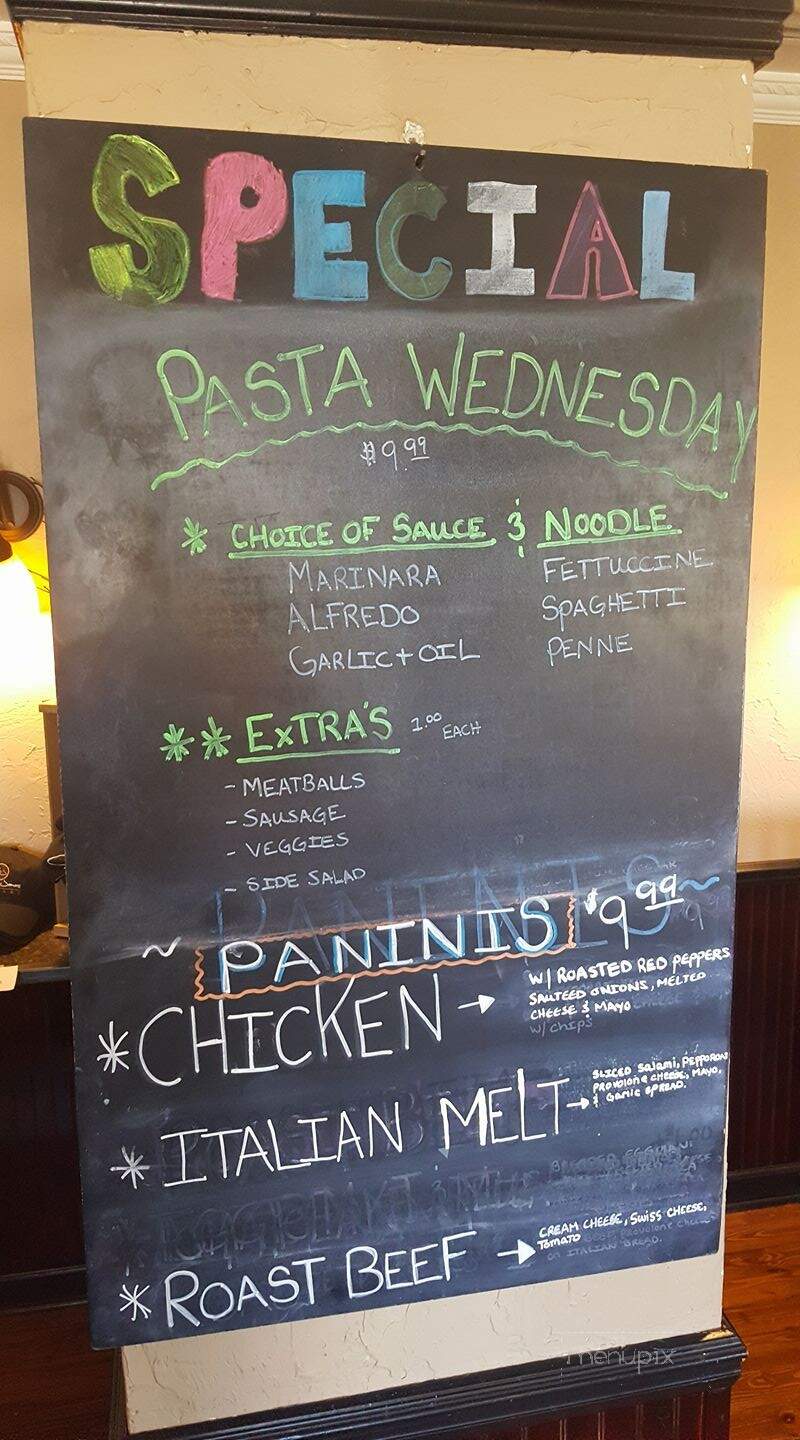 SPECIAL
PASTA WEDNESDAY
$9.99
* CHOICE OF SAUCE & NOODLE
MARINARA FETTUCCINE
ALFREDO SPAGHETTI
GARLIC + OIL PENNE
** EXTRA'S 1.00 EACH
- MEATBALLS
- SAUSAGE
- VEGGIES
- SIDE SALAD
~ PANINIS $9.99 ~
* CHICKEN → W/ ROASTED RED PEPPERS
SAUTEED ONIONS, MELTED
CHEESE & MAYO
W/ CHIPS
* ITALIAN MELT → SLICED SALAMI, PEPPERONI
PROVOLONE CHEESE, MAYO,
& GARLIC SPREAD.
* ROAST BEEF → CREAM CHEESE, SWISS CHEESE,
TOMATO
ON ITALIAN BREAD.
menupix